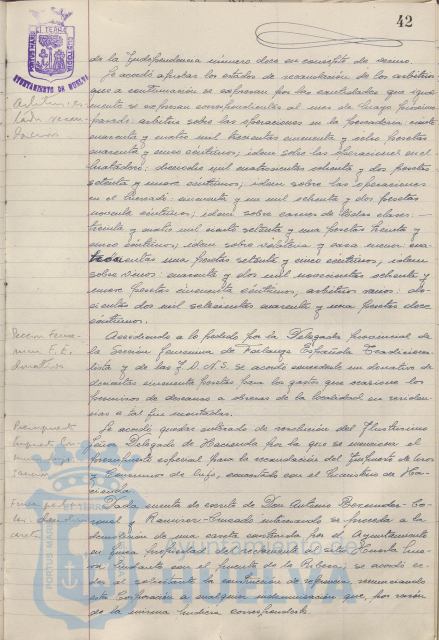 42
AYUNTAMIENTO DE HUELVA
de la Independencia número doce en concepto de
Se acordó aprobar los estados de recaudación de los arbitrios
que a continuación se expresan por las cantidades que igual-
mente se expresan correspondientes al mes de Mayo próximo
pasado: arbitrio sobre las operaciones en la pescadería: ciento
cuarenta y cuatro mil trescientas cincuenta y ocho pesetas
cuarenta y cinco céntimos; idem sobre las operaciones en el
Matadero: dieciocho mil cuatrocientas ochenta y dos pesetas
setenta y nueve céntimos; idem sobre las operaciones
en el Mercado: cincuenta y un mil ochenta y dos pesetas
noventa céntimos; idem sobre carnes de todas clases:
treinta y ocho mil ciento setenta y una pesetas treinta y
cinco céntimos; idem sobre volatería y caza menor:
una pesetas setenta y cinco céntimos; idem
sobre vinos: cuarenta y dos mil novecientas ochenta y
nueve pesetas cincuenta céntimos; arbitrios varios: dos-
cientas dos mil setecientas cuarenta y una pesetas doce
céntimos.
Sección Feme-
nina F.E.
donativo
Accediendo a lo pedido por la Delegada provincial de
la Sección femenina de Falange Española Tradiciona-
lista y de las J.O.N.S. se acordó concederle un donativo de
doscientas cincuenta pesetas para los gastos que ocasione los
permisos de descanso a obreras de la localidad en residen-
cias a tal fin montadas.
Presupuesto
Se acordó quedar enterado de resolución del Ilustrísimo
Señor Delegado de Hacienda por la que se
presupuesto especial para la recaudación del Impuesto de Usos
y Consumos de Lujo, concertado con el Ministerio de Ha-
cienda.
Dada cuenta de escrito de Don Antonio
y interesando se proceda a la
demolición de una caseta construida por el Ayuntamiento
en finca propiedad de recurrente al sitio
lindante con el puente de la Ribera; se acordó ce-
der al solicitante la construcción de referencia renunciando
esta Corporación a cualquier indemnización que, por razón
de la misma pudiera corresponderle.
Ayuntamiento de
HUELVA